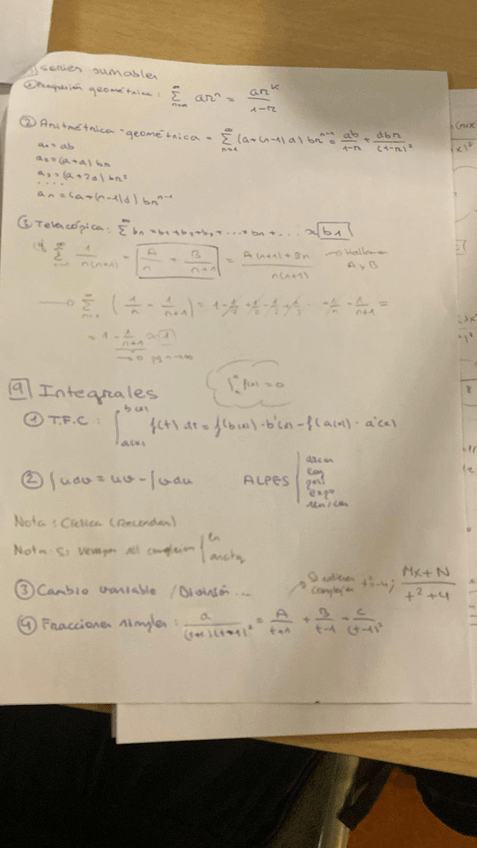 series sumables
① Progresión geométrica: ∞ Σ n=k arⁿ = arᴷ / 1-r
② Aritmétrica-geométrica = ∞ Σ n=1 (a+(n-1)d) brⁿ⁻¹ = ab / 1-r + dbr / (1-r)²
a₁ = ab
a₂ = (a+d) br
a₃ = (a+2d) br²
....
aₙ = (a+(n-1)d) brⁿ⁻¹
③ Telescópica: ∞ Σ bₙ = b₁+b₂+b₃+...+bₙ+... b1
∞ Σ 1 / n(n+1) = A / n + B / n+1 = A(n+1)+Bn / n(n+1) → Hallamos A y B
→ ∞ Σ ( 1/n - 1/n+1 ) = 1 - 1/2 + 1/2 - 1/3 + 1/3 ... - 1/n - 1/n+1 =
= 1 - 1/n+1 1
→0 n→∞
9 Integrales
∫ f(x) = 0
① T.F.C: ∫ b(x) a(x) f(t) dt = f(b(x))·b'(x) - f(a(x))·a'(x)
② ∫udv = uv - ∫vdu ALPES
arcos
log
pol
expo
sen/cos
Nota: Cíclica (Recuerden)
Nota: Si vemos
ln
arctg
③ Cambio variable / División ...
Si tienen complejas
Mx + N / t² + 4
④ Fracciones simples: a / (t+1)(t-1)² = A / t+1 + B / t-1 + C / (t-1)²